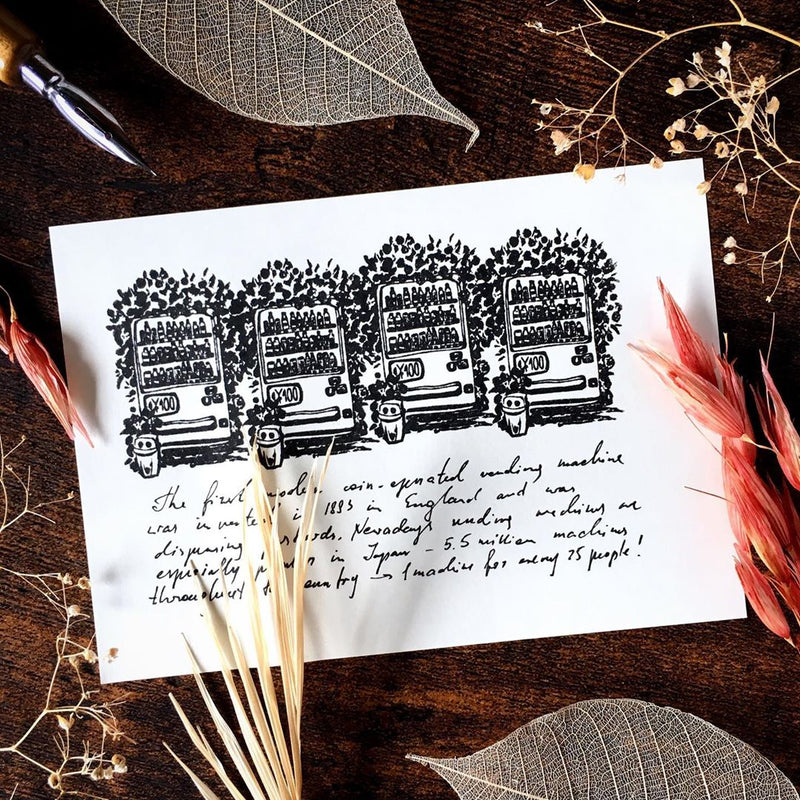 X100 X100 X100 X100
The first modern coin-operated vending machine
was invented in 1883 in England and was
dispensing postcards. Nowadays vending machines are
especially popular in Japan – 5.5 million machines
throughout the country → 1 machine for every 25 people!